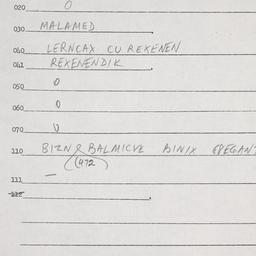 020 0
030 MALAMED
040 LERNCAX CU REXENEN
041 REXENENDIK
050 0
060 0
070 0
110 BALMICVE BINIX
(472)
111 —
112